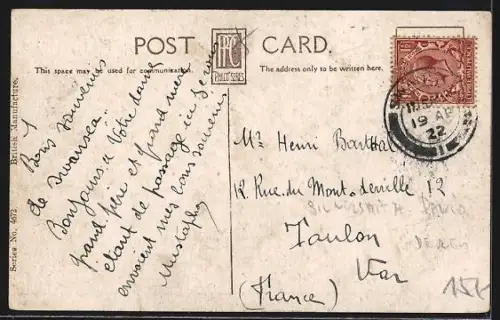 POST CARD.
This space may be used for communication.
The address only to be written here.
Bons souvenirs
de Swansea
Bonjours à Votre dame
grand père et grand mère
étant de passage in
envoient mes bons souvenirs
Mustapha
British Manufacture.
Series No. 4672
PHOTO SERIES
19 AP
22
Mr Henri Barthal
12 Rue du Mont 12
Toulon
Var
(France)
15k